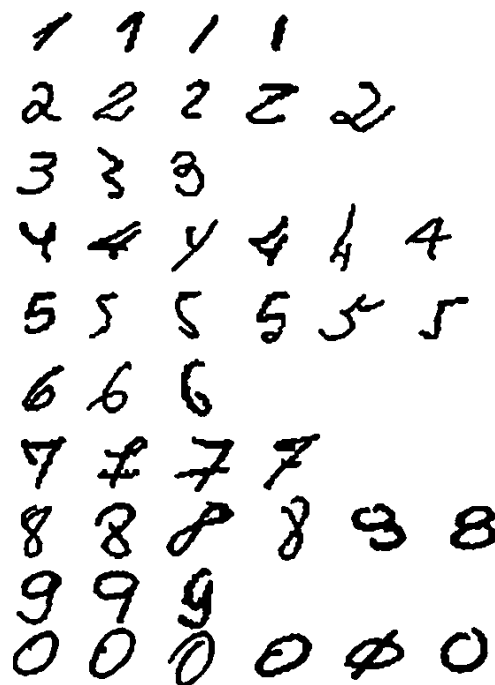 1 1 1 1
2 2 2 2 2
3 3 3
4 4 4 4 4 4
5 5 5 5 5 5
6 6 6
7 7 7 7
8 8 8 8 8 8
9 9 9
0 0 0 0 0 0